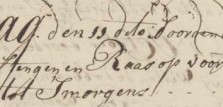 ag. den 11 dito Doorden
sengen en Raas op voor
tot Smorgens